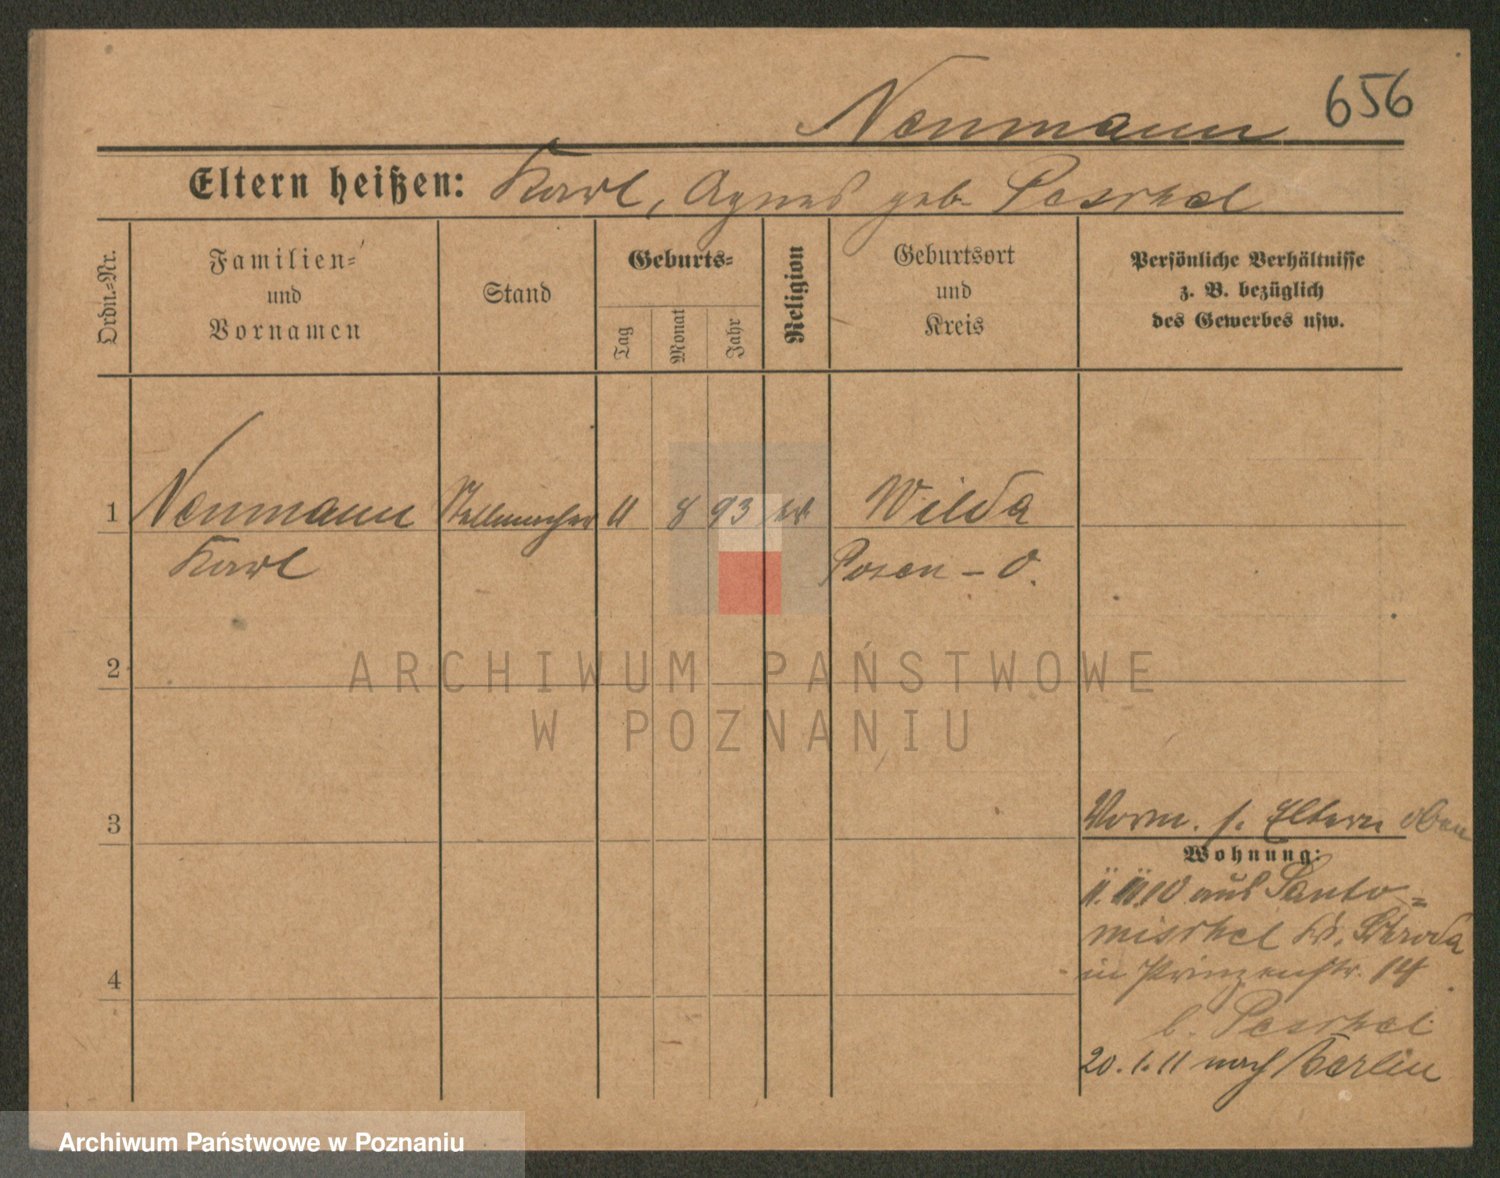 Neumann 656
Eltern heißen: Karl, Agnes geb. Peschel
Ordn.-Nr.
Familien-
und
Vornamen
Stand
Geburts-
Tag
Monat
Jahr
Religion
Geburtsort
und
Kreis
Persönliche Verhältnisse
z. B. bezüglich
des Gewerbes usw.
1 Neumann Stellmacher 11 8 93 Wilda
Karl Posen - O.
2
ARCHIWUM PAŃSTWOWE
W POZNANIU
3
Vorm. s. Eltern oben
Wohnung:
10 aus Santo-
mischel Kr. Schroda
4
in Prinzenstr. 14
b. Peschel
20.1.11 nach Berlin
Archiwum Państwowe w Poznaniu